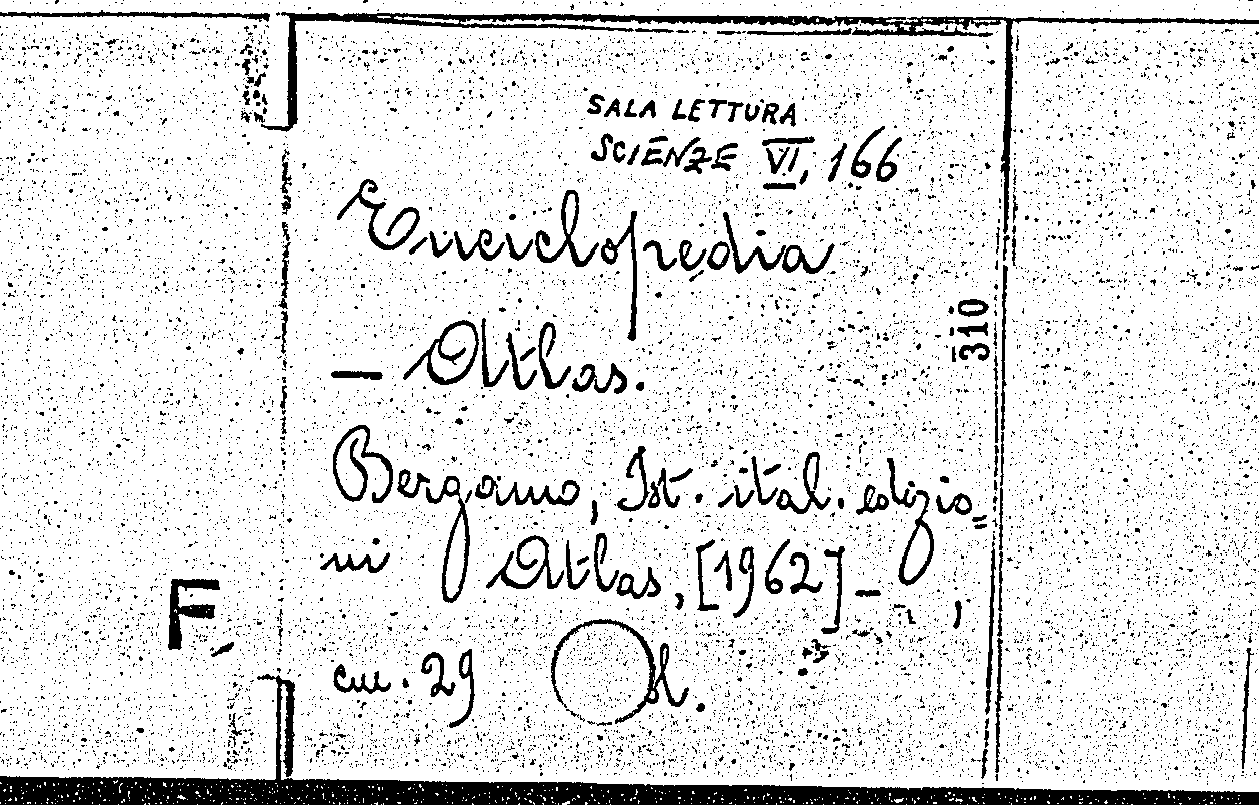 SALA LETTURA
SCIENZE VI, 166
Enciclopedia
— Atlas.
Bergamo, Ist. ital. edizio=
ni Atlas, [1962]- ,
cm. 29
310
F